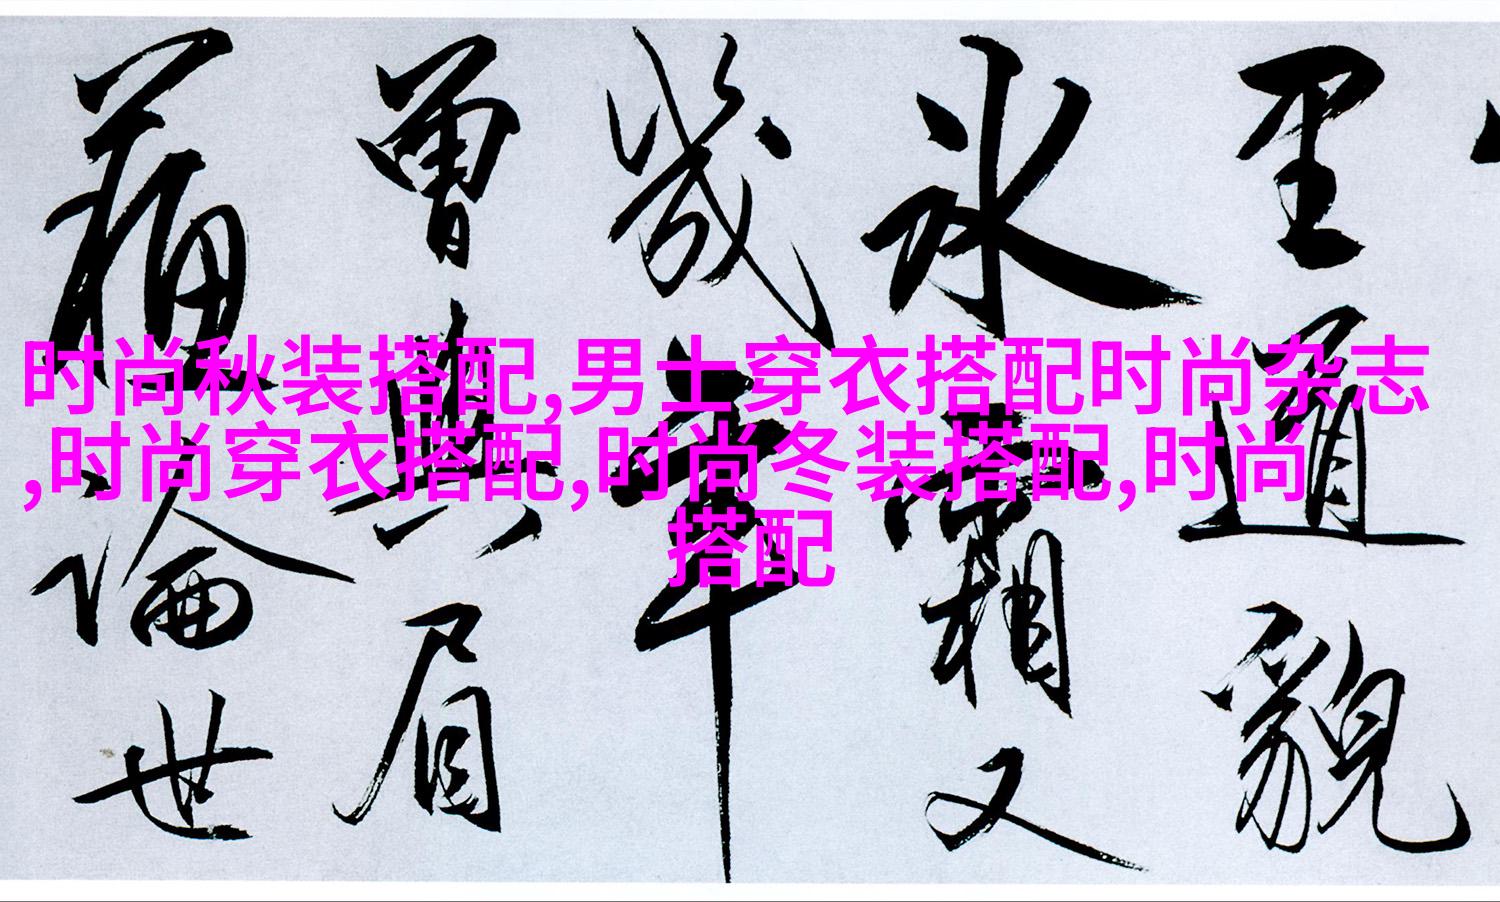 里通貌
冰霜又
幾年
曾與眉
蒲論世
时尚秋装搭配,男士穿衣搭配时尚杂志
,时尚穿衣搭配,时尚冬装搭配,时尚
搭配